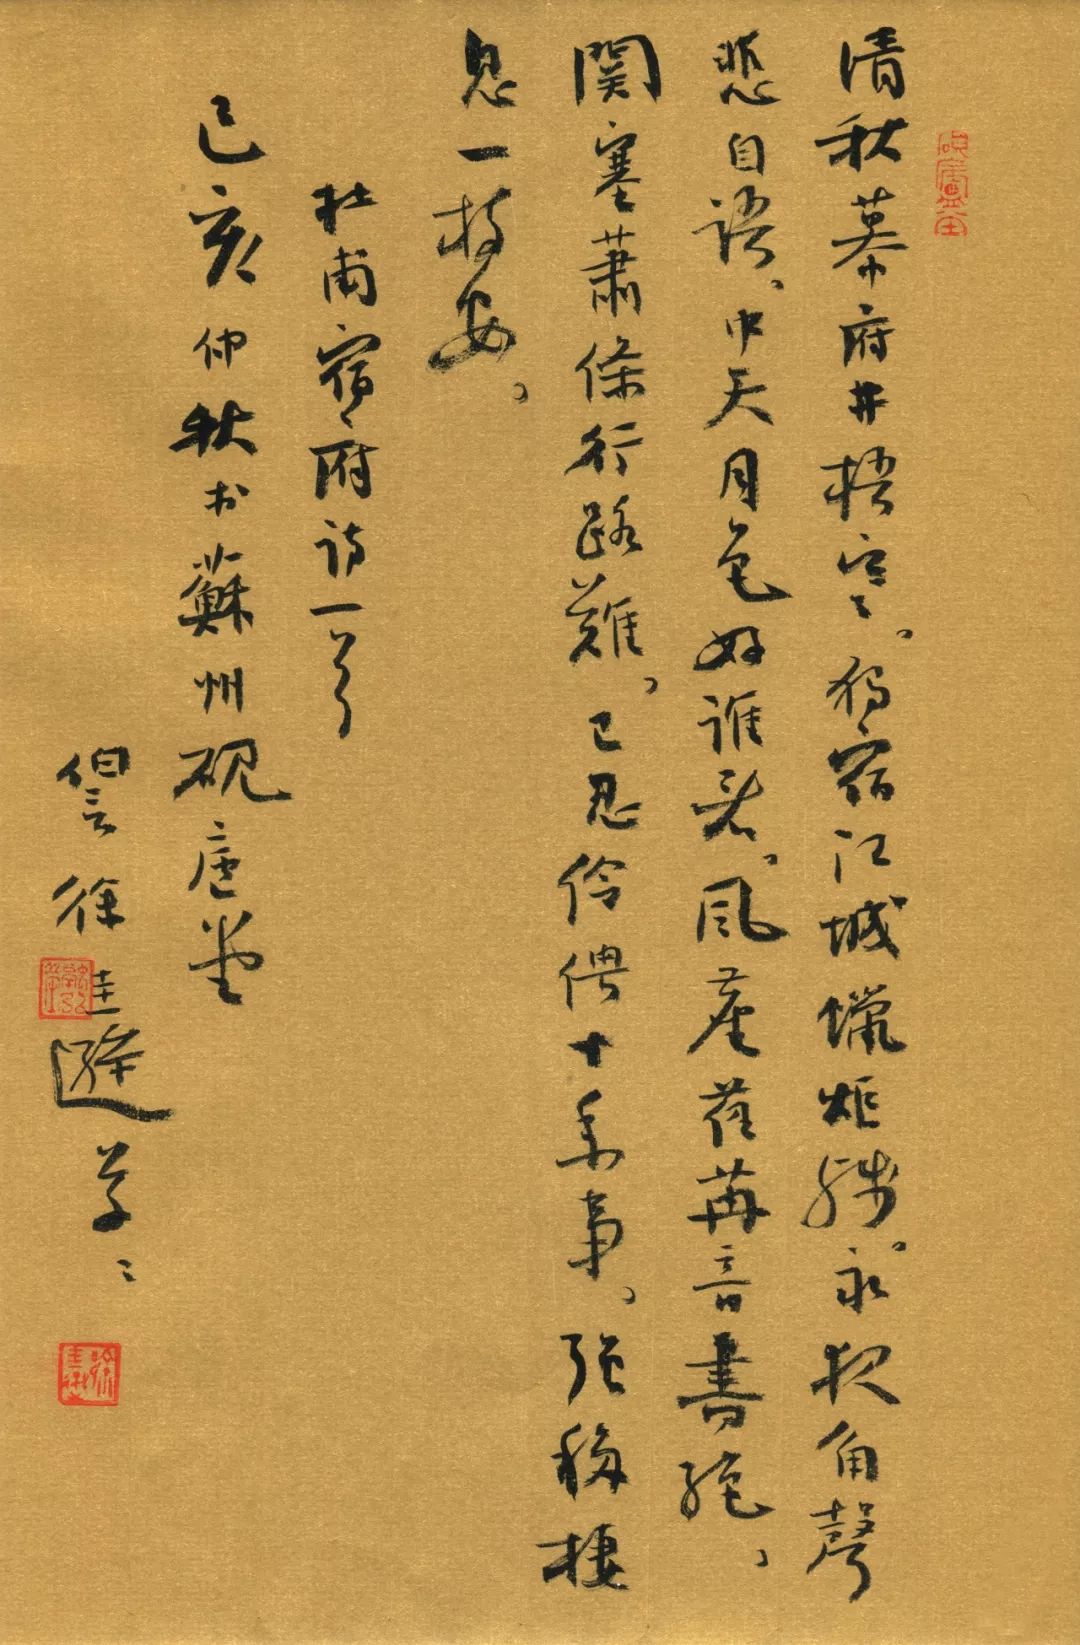 清秋幕府井梧寒、獨宿江城蠟炬殘、永夜角聲
悲自語、中天月色好誰看、風塵荏苒音書絕、
關塞蕭條行路難、已忍伶俜十年事、強移棲
息一枝安、
杜甫宿府詩一首
己亥仲秋於蘇州硯廬堂
伯言徐圭遜草〻